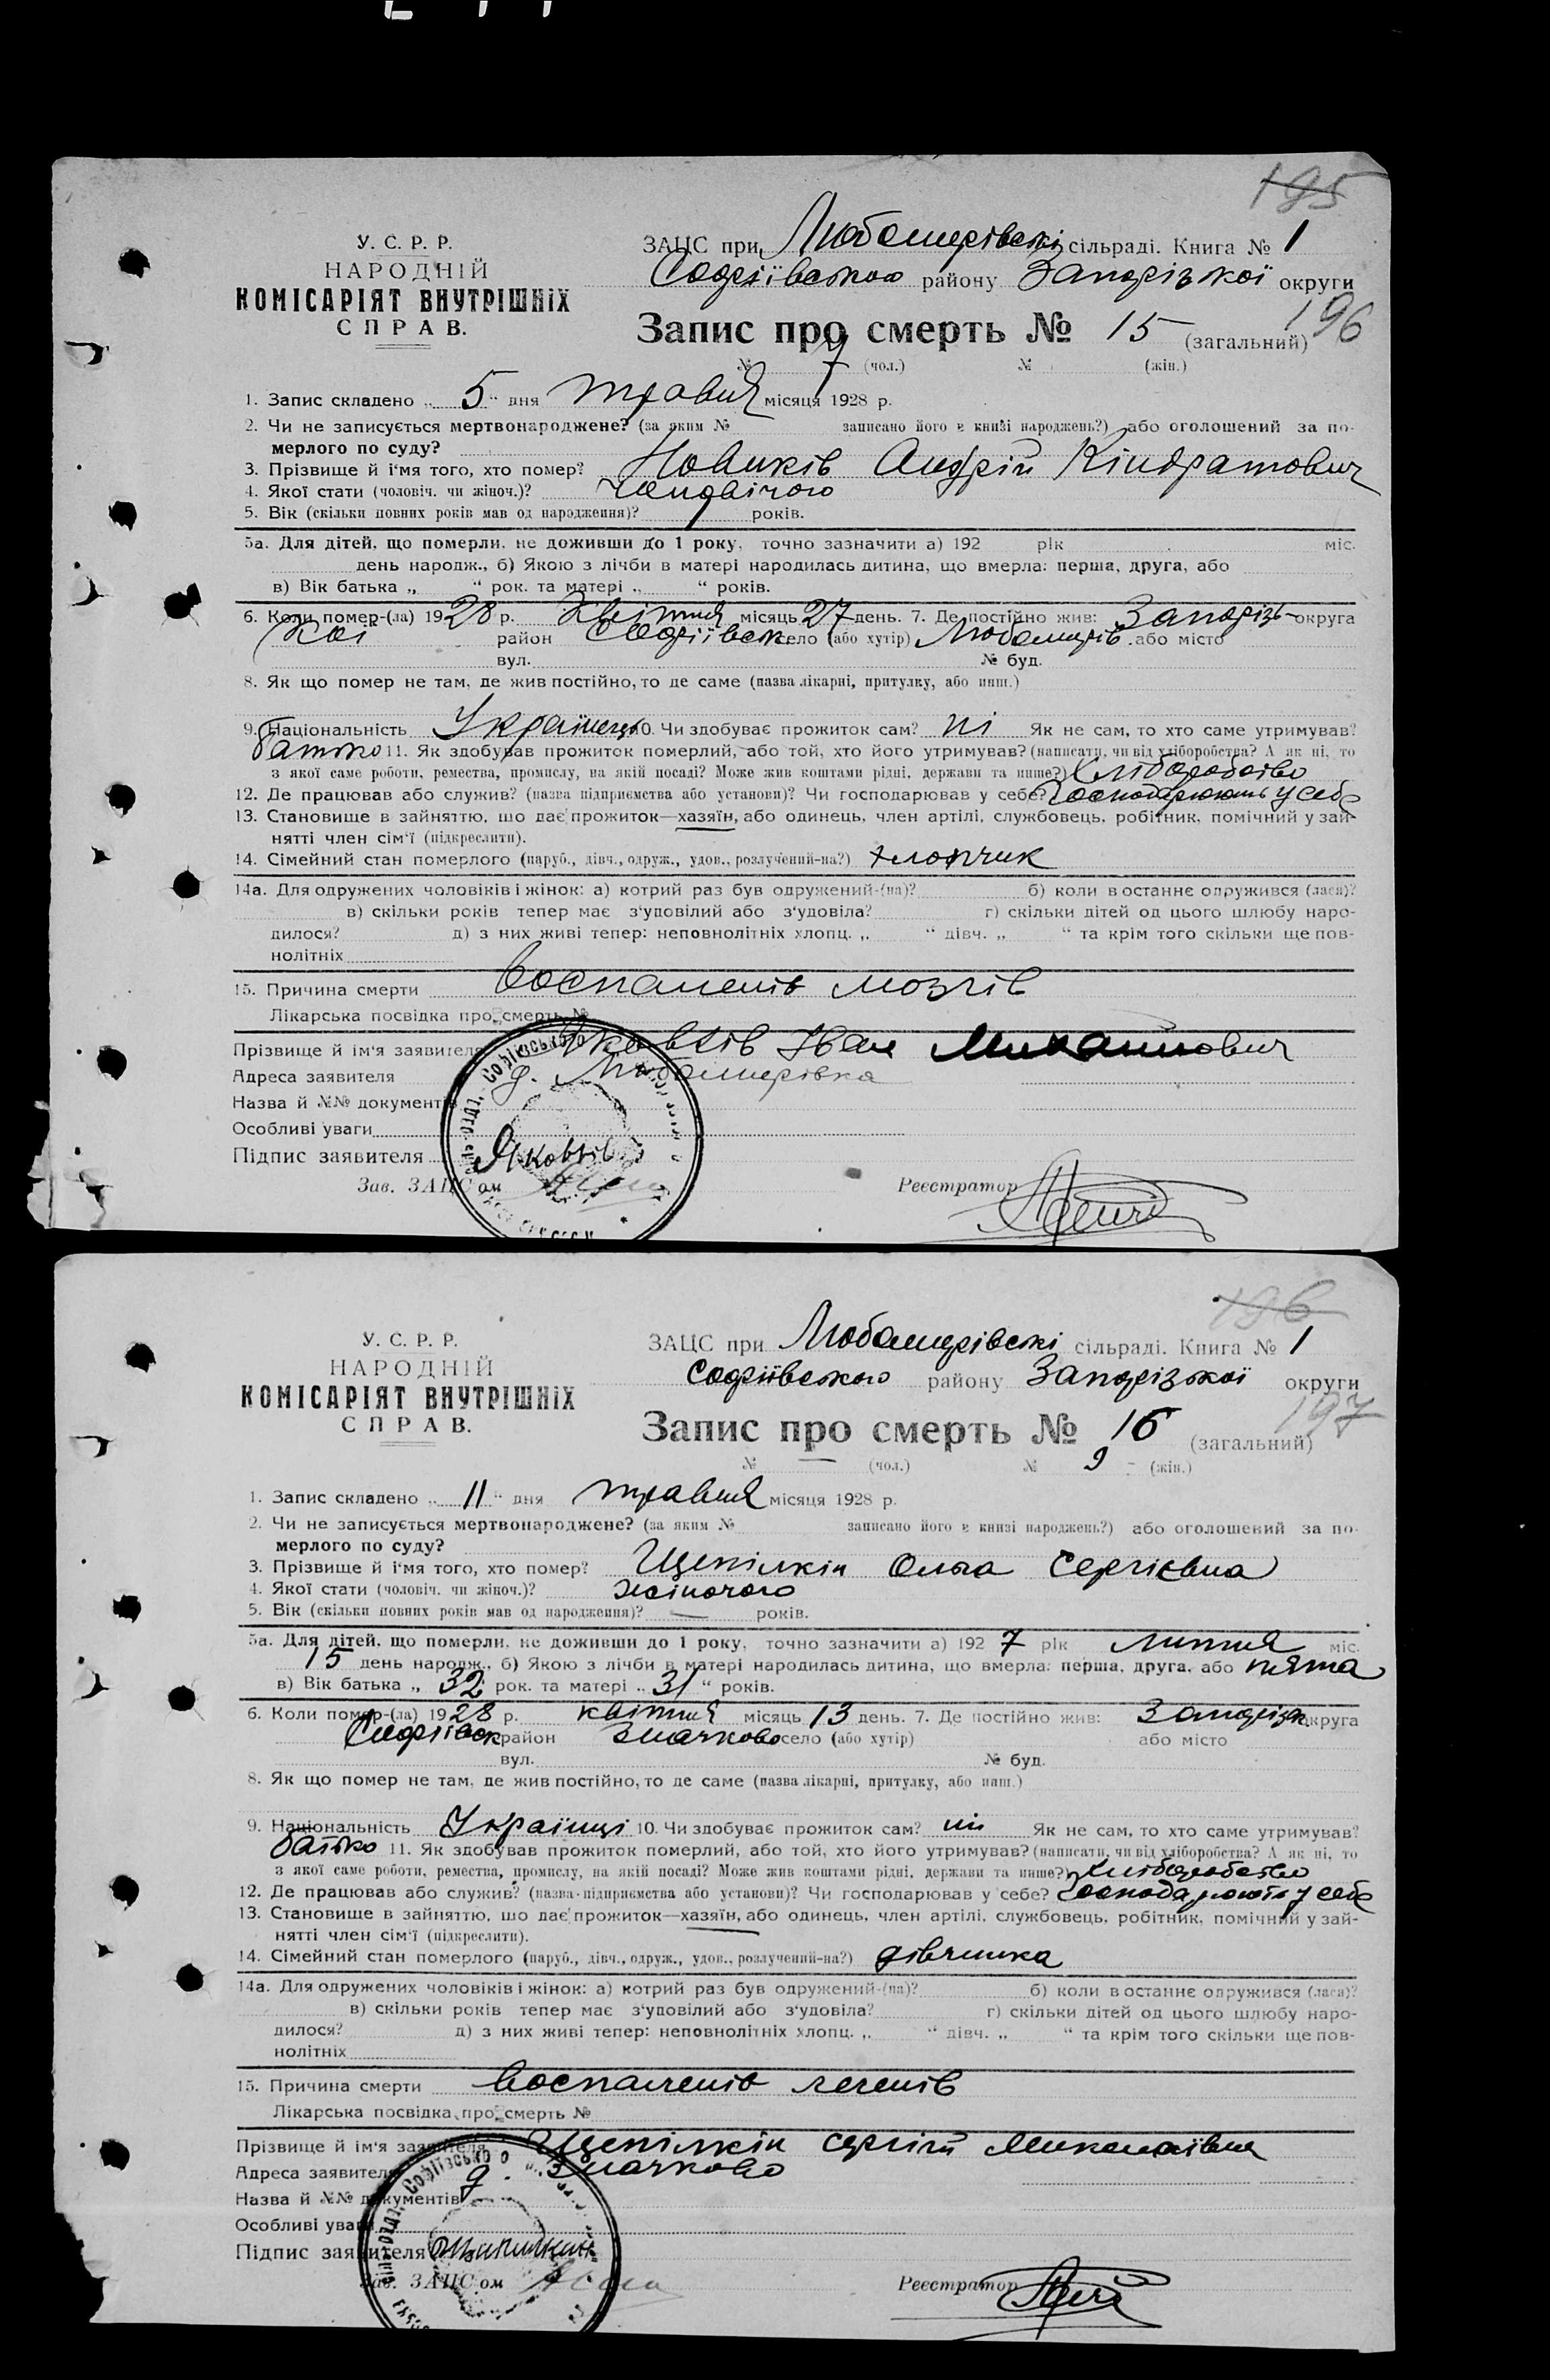 195
У. С. Р. Р.
НАРОДНІЙ
КОМІСАРІЯТ ВНУТРІШНІХ
СПРАВ.
ЗАЦС при Любомирівскі сільраді. Книга № 1
Софіївського району Запорізької округи
196
Запис про смерть № 15 (загальний)
№ 7 (чол.) № (жін.)
1. Запис складено „ 5 “ дня травня місяця 1928 р.
2. Чи не записується мертвонароджене? (за яким № записано його в книзі народжень?) або оголошений за по-
мерлого по суду?
3. Прізвище й і'мя того, хто помер? Новиків Андрій Кіндратович
4. Якої стати (чоловіч. чи жіноч.)? чоловічого
5. Вік (скільки повних років мав од народження)? 1 років.
5а. Для дітей, що померли, не доживши до 1 року, точно зазначити а) 192 рік міс.
день народж., б) Якою з лічби в матері народилась дитина, що вмерла: перша, друга, або
в) Вік батька „ “ рок. та матері „ “ років.
6. Коли помер-(ла) 1928 р. квітня місяць 27 день. 7. Де постійно жив: Запорізь- округа
кої район Софіївск село (або хутір) Любомирів. або місто
вул. № буд.
8. Як що помер не там, де жив постійно, то де саме (назва лікарні, притулку, або инш.)
9. Національність Українець 10. Чи здобуває прожиток сам? ні Як не сам, то хто саме утримував?
батько 11. Як здобував прожиток померлий, або той, хто його утримував? (написати, чи від хліборобства? А як ні, то
з якої саме роботи, ремества, промислу, на якій посаді? Може жив коштами рідні, держави та инше?) хліборобство
12. Де працював або служив? (назва підприємства або установи)? Чи господарював у себе? Господарюють у себе
13. Становище в зайняттю, що дає прожиток—хазяїн, або одинець, член артілі, службовець, робітник, помічний у зай-
нятті член сім'ї (підкреслити).
14. Сімейний стан померлого (паруб., дівч., одруж., удов., розлучений-на?) хлопчик
14а. Для одружених чоловіків і жінок: а) котрий раз був одружений-(на)? б) коли в останнє одружився (лася)?
в) скільки років тепер має з'удовілий або з'удовіла? г) скільки дітей од цього шлюбу наро-
дилося? д) з них живі тепер: неповнолітніх хлопц. „ “ дівч. „ “ та крім того скільки ще пов-
нолітніх
15. Причина смерти Воспаленів мозгів
Лікарська посвідка про смерть №
Прізвище й ім'я заявителя Яковлів Іван Михайлович
Адреса заявителя д. Любомирівка
Назва й №№ документів
Особливі уваги
Підпис заявителя Яковлів
Зав. ЗАЦС ом Реєстратор
196
У. С. Р. Р.
НАРОДНІЙ
КОМІСАРІЯТ ВНУТРІШНІХ
СПРАВ.
ЗАЦС при Любомирівскі сільраді. Книга № 1
Софіївського району Запорізької округи
197
Запис про смерть № 16 (загальний)
№ — (чол.) № 9 (жін.)
1. Запис складено „ 11 “ дня травня місяця 1928 р.
2. Чи не записується мертвонароджене? (за яким № записано його в книзі народжень?) або оголошений за по-
мерлого по суду?
3. Прізвище й і'мя того, хто помер? Щепілкін Ольга Сергієвна
4. Якої стати (чоловіч. чи жіноч.)? жіночого
5. Вік (скільки повних років мав од народження)? — років.
5а. Для дітей, що померли, не доживши до 1 року, точно зазначити а) 1927 рік липня міс.
15 день народж., б) Якою з лічби в матері народилась дитина, що вмерла: перша, друга, або пята
в) Вік батька „ 32 рок. та матері „ 31 “ років.
6. Коли помер-(ла) 1928 р. квітня місяць 13 день. 7. Де постійно жив: Запорізк округа
Софіївск район Значково село (або хутір) або місто
вул. № буд.
8. Як що помер не там, де жив постійно, то де саме (назва лікарні, притулку, або инш.)
9. Національність Українці 10. Чи здобуває прожиток сам? ні Як не сам, то хто саме утримував?
батько 11. Як здобував прожиток померлий, або той, хто його утримував? (написати, чи від хліборобства? А як ні, то
з якої саме роботи, ремества, промислу, на якій посаді? Може жив коштами рідні, держави та инше?) хліборобство
12. Де працював або служив? (назва підприємства або установи)? Чи господарював у себе? Господарюють у себе
13. Становище в зайняттю, що дає прожиток—хазяїн, або одинець, член артілі, службовець, робітник, помічний у зай-
нятті член сім'ї (підкреслити).
14. Сімейний стан померлого (паруб., дівч., одруж., удов., розлучений-на?) дівчинка
14а. Для одружених чоловіків і жінок: а) котрий раз був одружений-(на)? б) коли в останнє одружився (лася)?
в) скільки років тепер має з'удовілий або з'удовіла? г) скільки дітей од цього шлюбу наро-
дилося? д) з них живі тепер: неповнолітніх хлопц. „ “ дівч. „ “ та крім того скільки ще пов-
нолітніх
15. Причина смерти Воспаленів легенів
Лікарська посвідка про смерть №
Прізвище й ім'я заявителя Щепілкін Сергій Миколаївич
Адреса заявителя д. Значково
Назва й №№ документів
Особливі уваги
Підпис заявителя
Зав. ЗАЦС ом Реєстратор